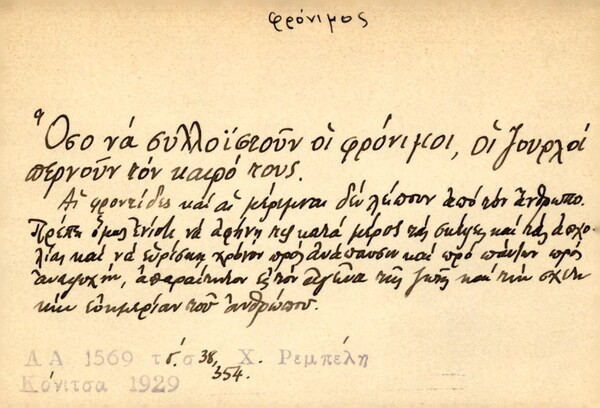 φρόνιμος
Ὅσο νά συλλοϊστοῦν οἱ φρόνιμοι, οἱ ζουρλοί
περνοῦν τόν καιρό τους.
Αἱ φροντίδες καί αἱ μέριμναι δέν λείπουν ἀπό τόν ἄνθρωπο.
Πρέπει ὅμως ἐνίοτε νά ἀφήνῃ τις κατά μέρος τάς σκέψεις καί τάς ἀσχο
λίας καί νά εὑρίσκῃ χρόνον πρός ἀνάπαυσιν καί πρό πάντων πρός
ἀναψυχήν, ἀπαραίτητον εἰς τόν ἀγῶνα τῆς ζωῆς καί τήν σχετι
κήν εὐημερίαν τοῦ ἀνθρώπου.
ΛΑ 1569 τ. σ. 38, Χ. Ρεμπέλη
Κόνιτσα 1929 354.